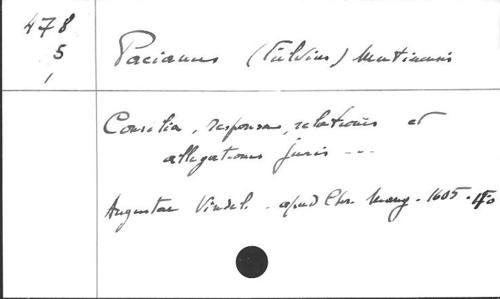 478
5
1
Pacianus (Fulvius) Mutinensis
Consilia, responsa, relationes et
allegationes juris ---
Augustae Vindel. - apud Chr. Mang - 1605 - fo